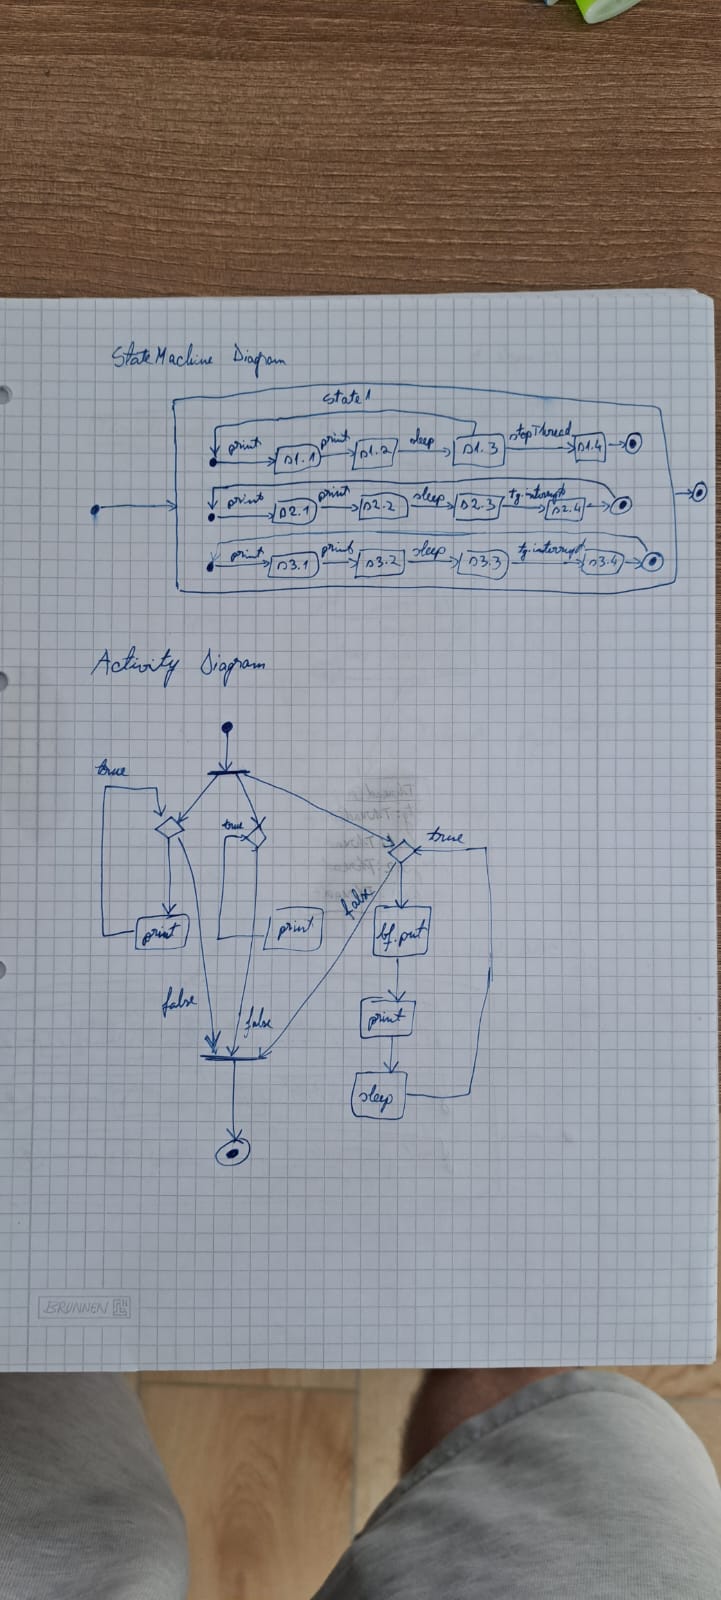 StateMachine Diagram
State1
print s1.1 print s1.2 sleep s1.3 stopThread s1.4
print s2.1 print s2.2 sleep s2.3 tg.interrupt s2.4
print s3.1 print s3.2 sleep s3.3 tg.interrupt s3.4
Activity Diagram
true
true
true
print
print
false
bf.put
false
false
print
sleep
BRUNNEN